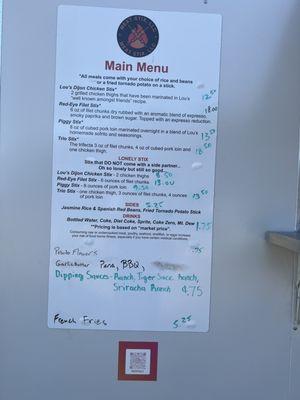 MEAT STIX, LLC
Main Menu
"All meals come with your choice of rice and beans
or a fried tornado potato on a stick.
Lou's Dijon Chicken Stix*
2 grilled chicken thighs that have been marinated in Lou's
"well known amongst friends" recipe.
Red-Eye Filet Stix*
6 oz of filet chunks dry rubbed with an aromatic blend of espresso,
smoky paprika and brown sugar. Topped with an espresso reduction.
18.00
Piggy Stix*
8 oz of cubed pork loin marinated overnight in a blend of Lou's
homemade sofrito and seasonings.
13.50
Trio Stix*
The trifecta 3 oz of filet chunks, 4 oz of cubed pork loin and
one chicken thigh.
18.50
LONELY STIX
Stix that DO NOT come with a side partner...
Oh so lonely but still so good...
Lou's Dijon Chicken Stix - 2 chicken thighs 8.50
Red-Eye Filet Stix - 6 ounces of filet chunks 13.00
Piggy Stix - 8 ounces of pork loin 9.50
Trio Stix - one chicken thigh, 3 ounces of filet chunks, 4 ounces
of pork loin 13.50
SIDES 5.25
Jasmine Rice & Spanish Red Beans, Fried Tornado Potato Stick
DRINKS
Bottled Water, Coke, Diet Coke, Sprite, Coke Zero, Mt. Dew 1.75
**Pricing is based on "market price".
Consuming raw or undercooked meat, poultry, seafood, shellfish, or eggs increase
your risk of food borne illness, especially if you have certain medical conditions.
Potato Flavors .75
Parm, BBQ,
Dipping Sauces - Ranch, Tiger Sauce Ranch,
Sriracha Ranch .75
French Fries 5.25